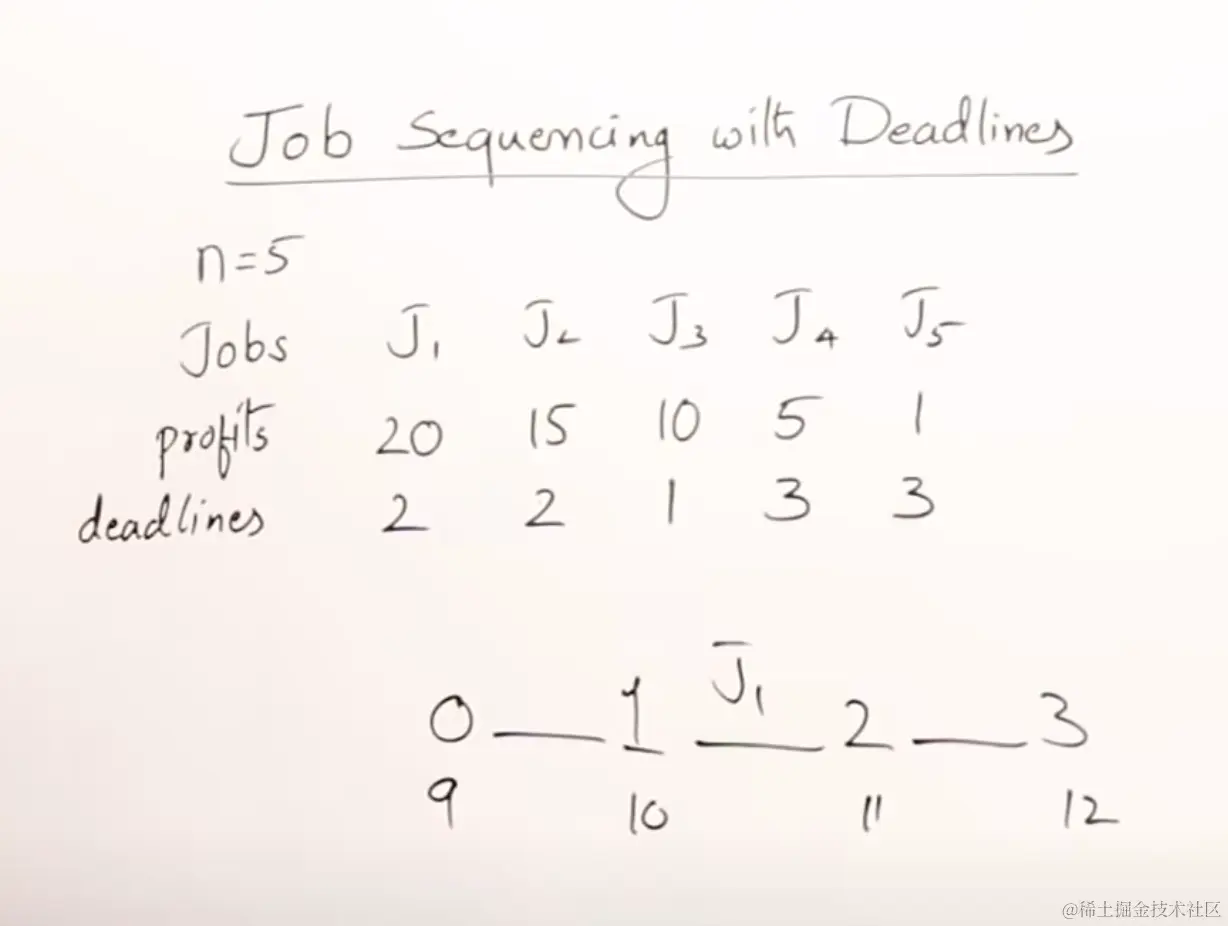 Job Sequencing with Deadlines
n=5
Jobs J₁ J₂ J₃ J₄ J₅
profits 20 15 10 5 1
deadlines 2 2 1 3 3
J₁
0 1 2 3
9 10 11 12
@稀土掘金技术社区